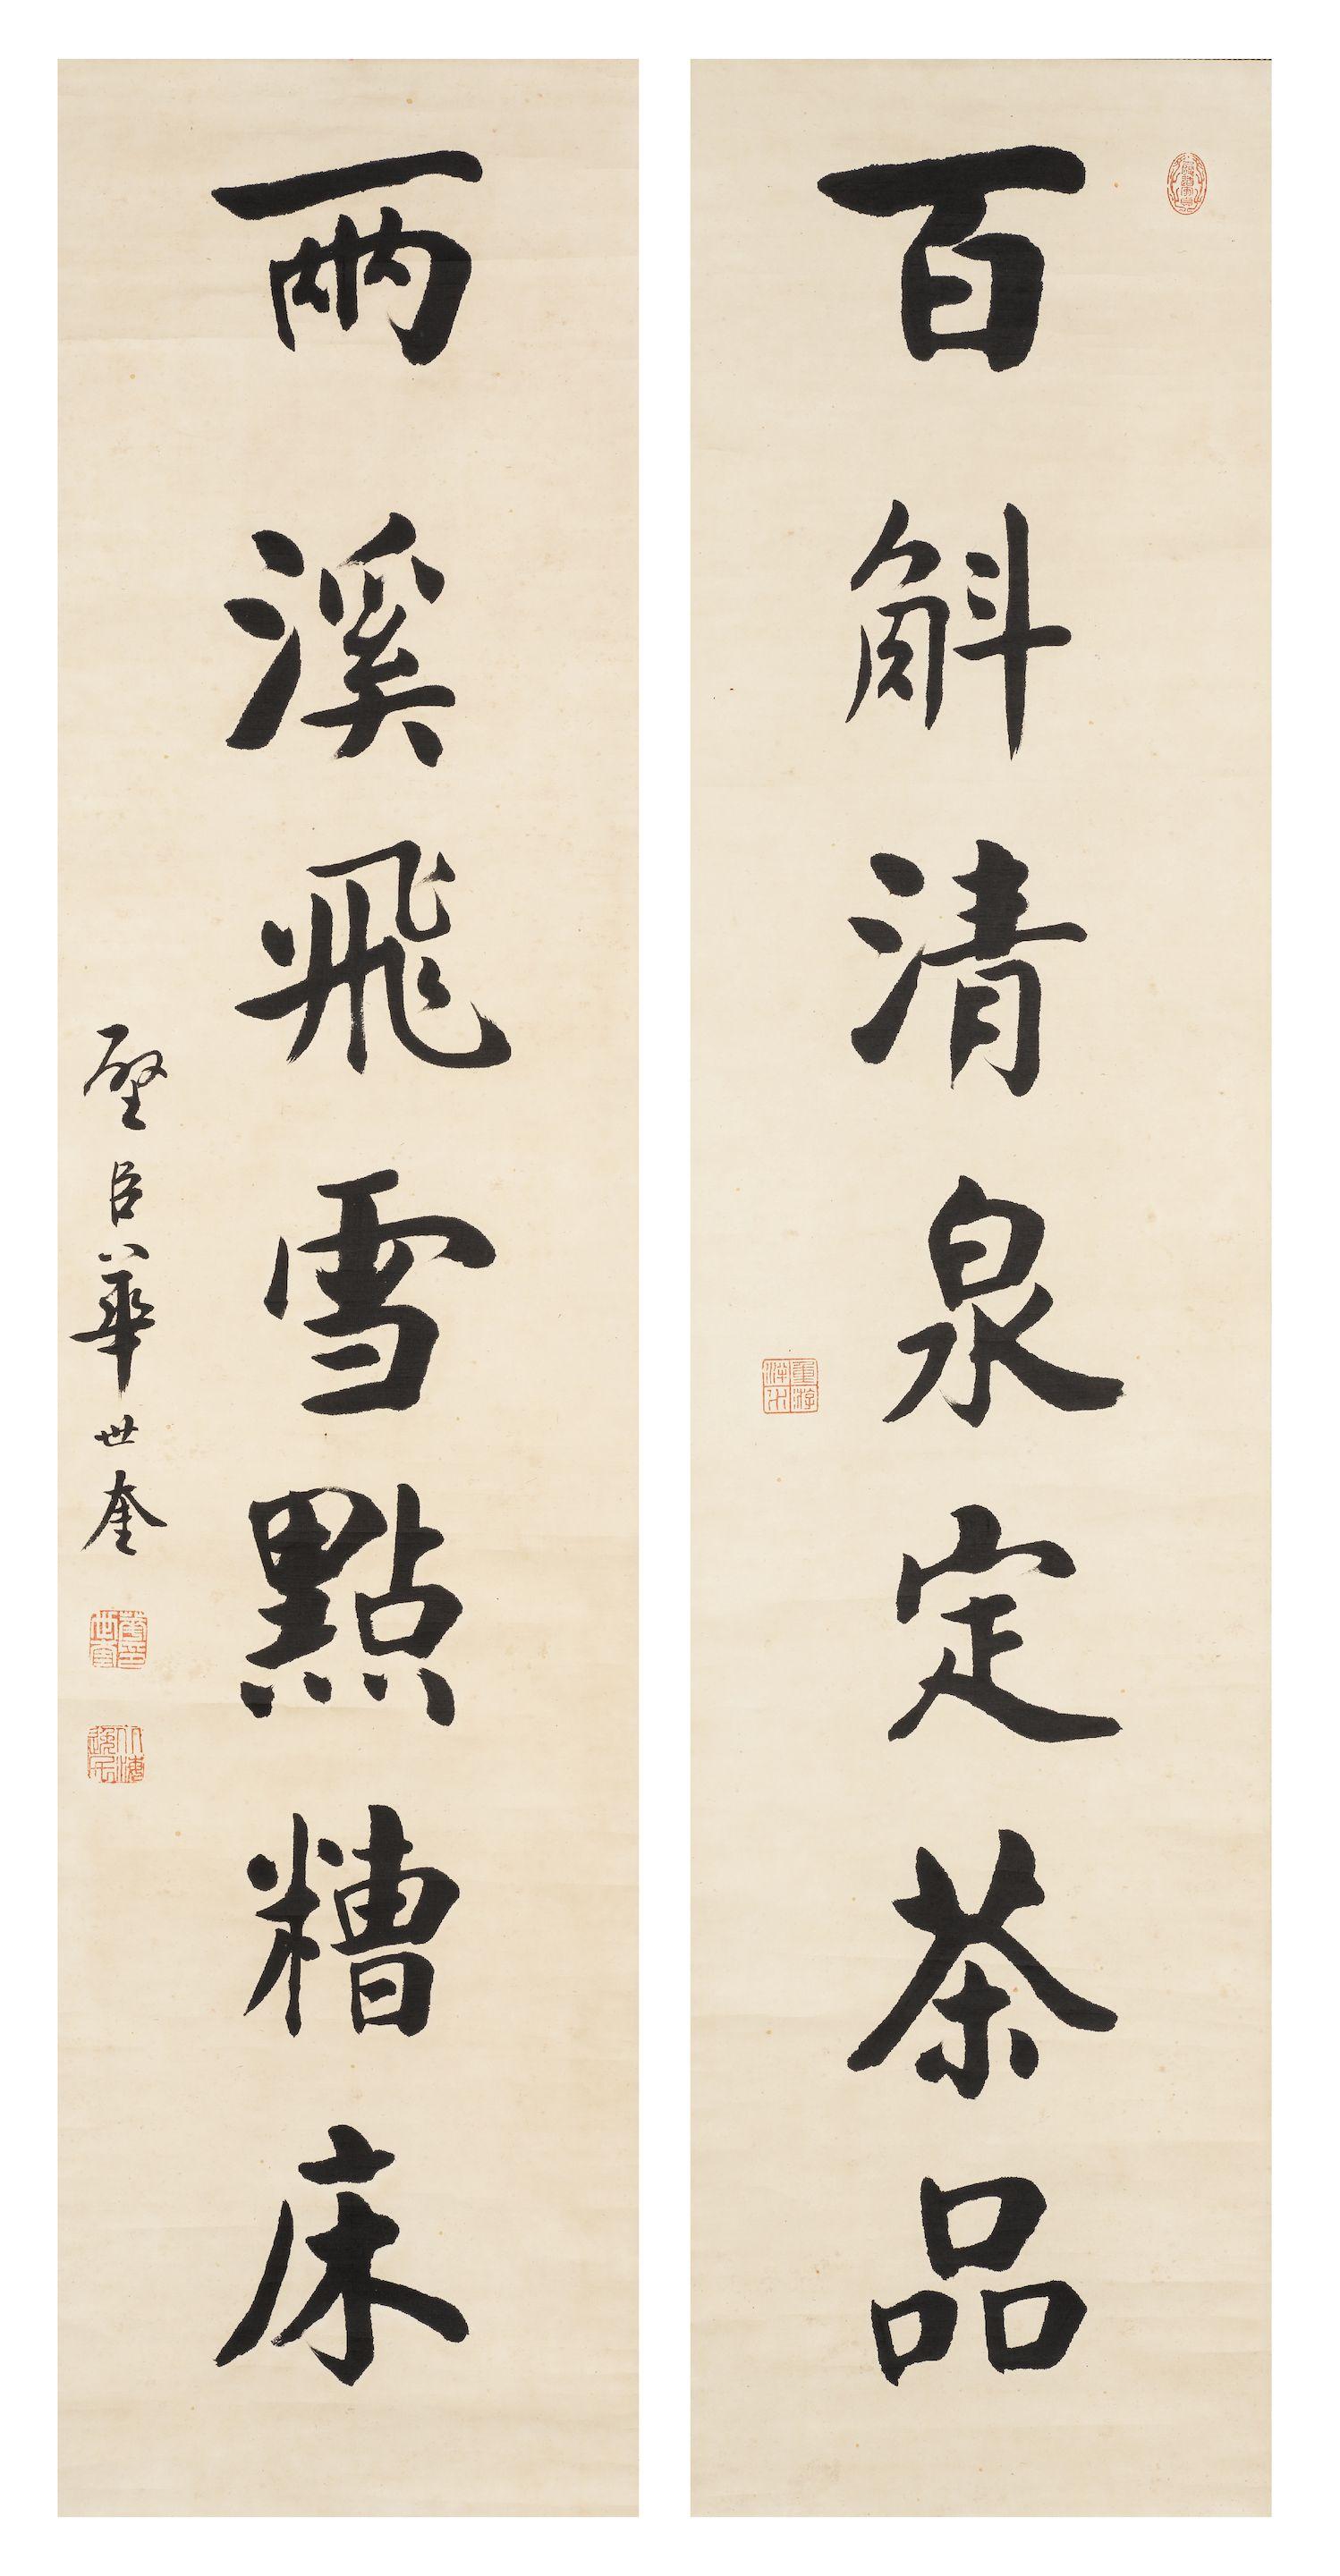 百斛清泉定茶品
兩溪飛雪點糟床
壁臣華世奎
重游泮水